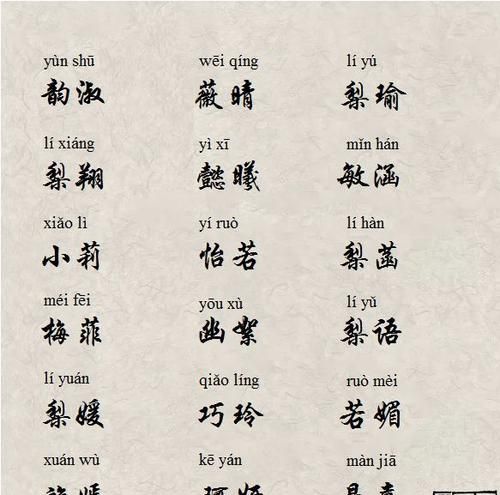 yùn shū wēi qíng lí yú
韵淑 薇晴 梨瑜
lí xiáng yì xī mǐn hán
梨翔 懿曦 敏涵
xiǎo lì yí ruò lí hàn
小莉 怡若 梨菡
méi fēi yōu xù lí yǔ
梅菲 幽絮 梨语
lí yuán qiǎo líng ruò mèi
梨媛 巧玲 若媚
xuán wù kē yán màn jiā